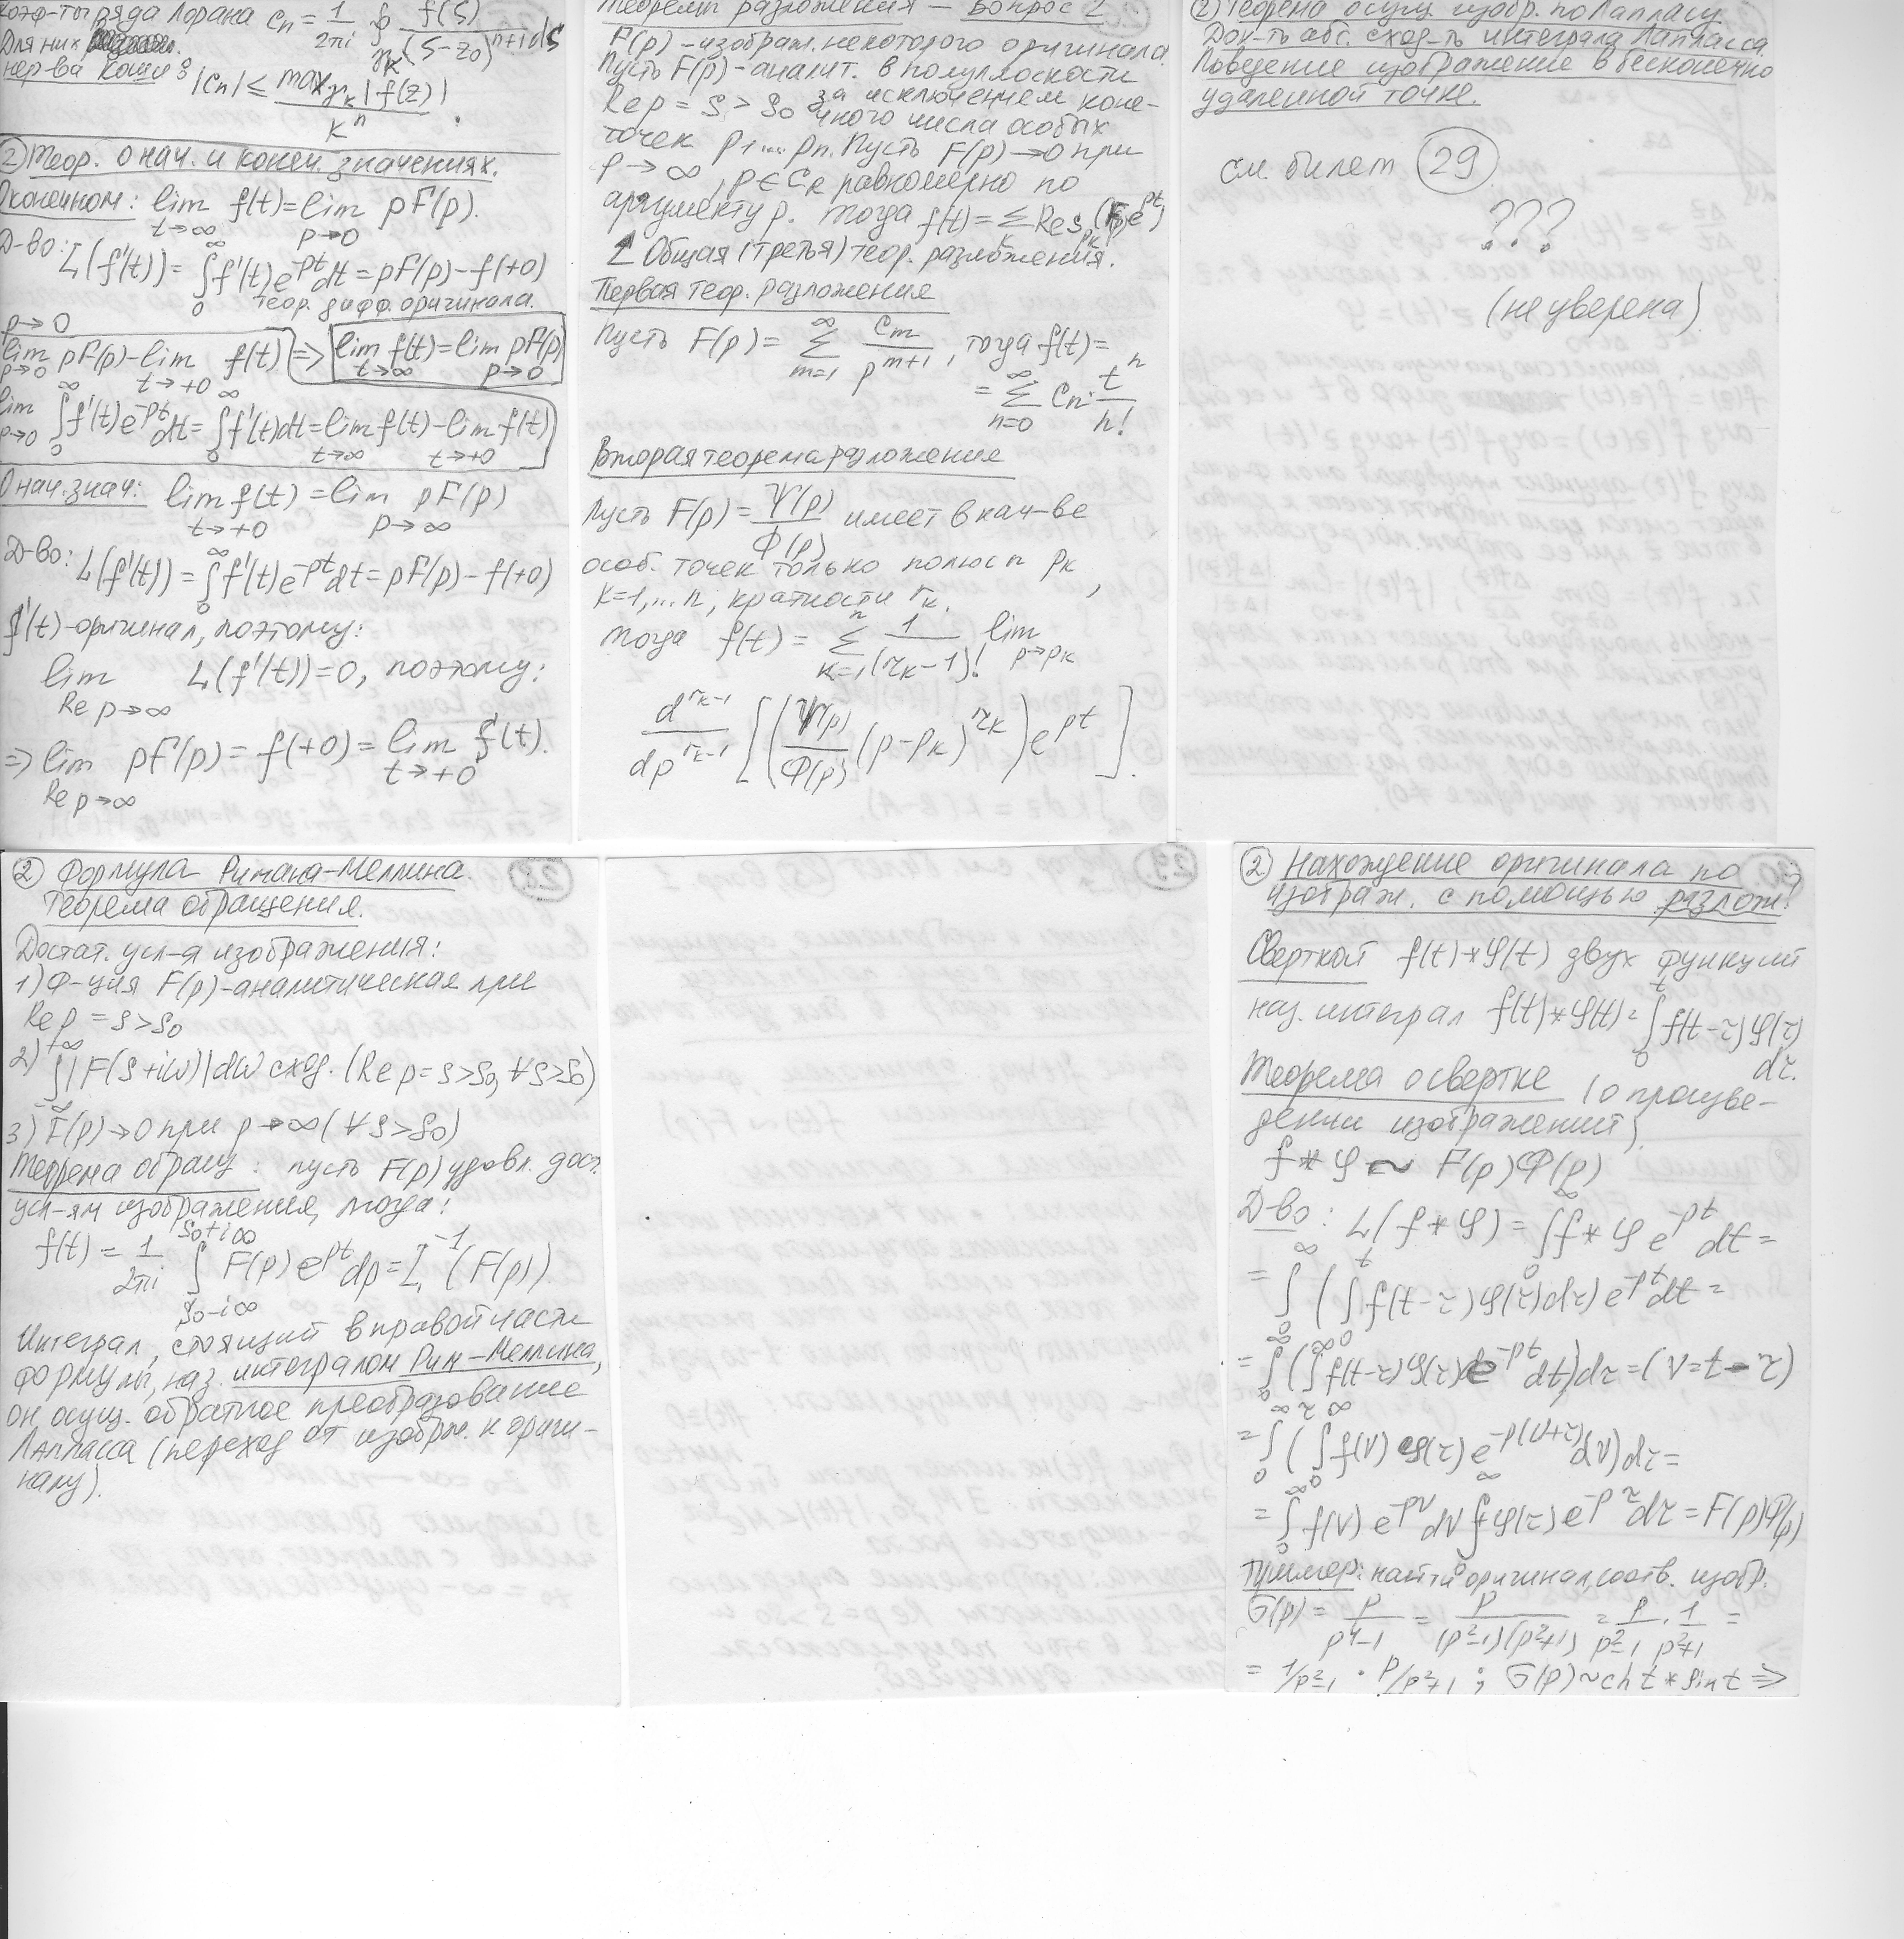 Коэф-ты ряда Лорана Cn = 1/2πi ∮γk f(ζ)/(ζ-z0)^(n+1) dζ
Для них
нер-ва Коши:
|Cn| ≤ max γk |f(z)| / k^n.
② Теор. о нач. и конеч. значениях.
О конечном: lim t→∞ f(t) = lim p→0 pF(p).
Д-во: L(f'(t)) = ∫0^∞ f'(t)e^(-pt)dt = pF(p) - f(+0)
теор. дифф. оригинала.
p→0
lim p→0 pF(p) - lim t→+0 f(t) => lim t→∞ f(t) = lim p→0 pF(p)
lim p→0 ∫0^∞ f'(t)e^(-pt)dt = ∫0^∞ f'(t)dt = lim t→∞ f(t) - lim t→+0 f(t)
О нач. знач: lim t→+0 f(t) = lim p→∞ pF(p)
Д-во: L(f'(t)) = ∫0^∞ f'(t)e^(-pt)dt = pF(p) - f(+0)
f'(t)-оригинал, поэтому:
lim Re p→∞ L(f'(t)) = 0, поэтому:
=> lim Re p→∞ pF(p) = f(+0) = lim t→+0 f(t).
Теоремы разложения — Вопрос 2
F(p) - изображ. некоторого оригинала.
Пусть F(p) - аналит. в полуплоскости
Re p = S > S0 за исключением коне-
чного числа особых
точек p1...pn. Пусть F(p)→0 при
p→∞, p∈CR равномерно по
аргументу p. Тогда f(t) = Σk Res pk (F(p)e^(pt))
Общая (третья) теор. разложения.
Первая теор. разложения
Пусть F(p) = Σ m=1 ∞ Cm/p^(m+1), тогда f(t) =
= Σ n=0 ∞ Cn · t^n/n!
Вторая теорема разложение
Пусть F(p) = Ψ(p)/Φ(p) имеет в кач-ве
особ. точек только полюсы pk,
k=1,...n, кратности rk.
Тогда f(t) = Σ k=1 n 1/(rk-1)! lim p→pk
d^(rk-1)/dp^(rk-1) [(Ψ(p)/Φ(p) (p-pk)^rk) e^(pt)].
② Теорема осущ. изобр. по Лапласу.
Док-ть абс. сход-ть интеграла Лапласса
Поведение изображение в бесконечно
удаленной точке.
см. билет 29
???
(не уверена)
② Формула Римана-Меллина.
Теорема обращения.
28.
Достат. усл-я изображения:
1) Ф-ция F(p)-аналитическая при
Re p = S > S0
2) ∫-∞^+∞ |F(S+iω)|dω сход. (Re p = S > S0, ∀S > S0)
3) F(p)→0 при p→∞ (∀S > S0)
Теорема обращ: пусть F(p) удовл. дост.
усл-ям изображения, тогда:
f(t) = 1/2πi ∫ S0-i∞ ^ S0+i∞ F(p)e^(pt)dp = L^-1(F(p)).
Интеграл, стоящий в правой части
формулы, наз. интегралом Рим-Меллина,
он осущ. обратное преобразование
Лапласса (переход от изображ. к ориги-
налу).
29.
② Нахождение оригинала по
изображ. с помощью разлож.
Сверткой f(t)*φ(t) двух функций
наз. интеграл f(t)*φ(t) = ∫0^t f(t-τ)φ(τ)
dτ.
Теорема о свертке (о произве-
дении изображений).
f*φ ~ F(p)Φ(p)
Д-во: L(f*φ) = ∫0^∞ f*φ e^(-pt)dt =
= ∫0^∞ (∫0^t f(t-τ)φ(τ)dτ) e^(-pt)dt =
= ∫0^∞ (∫τ^∞ f(t-τ)φ(τ)e^(-pt)dt)dτ = (V=t-τ)
= ∫0^∞ (∫0^∞ f(V)φ(τ)e^(-p(V+τ))dV)dτ =
= ∫0^∞ f(V)e^(-pV)dV ∫0^∞ φ(τ)e^(-pτ)dτ = F(p)Φ(p)
Пример: найти оригинал, соотв. изобр.
G(p) = p/(p^4-1) = p/((p²-1)(p²+1)) = p/(p²-1) · 1/(p²+1) =
= 1/p²-1 · p/p²+1 ; G(p) ~ ch t * sin t =>